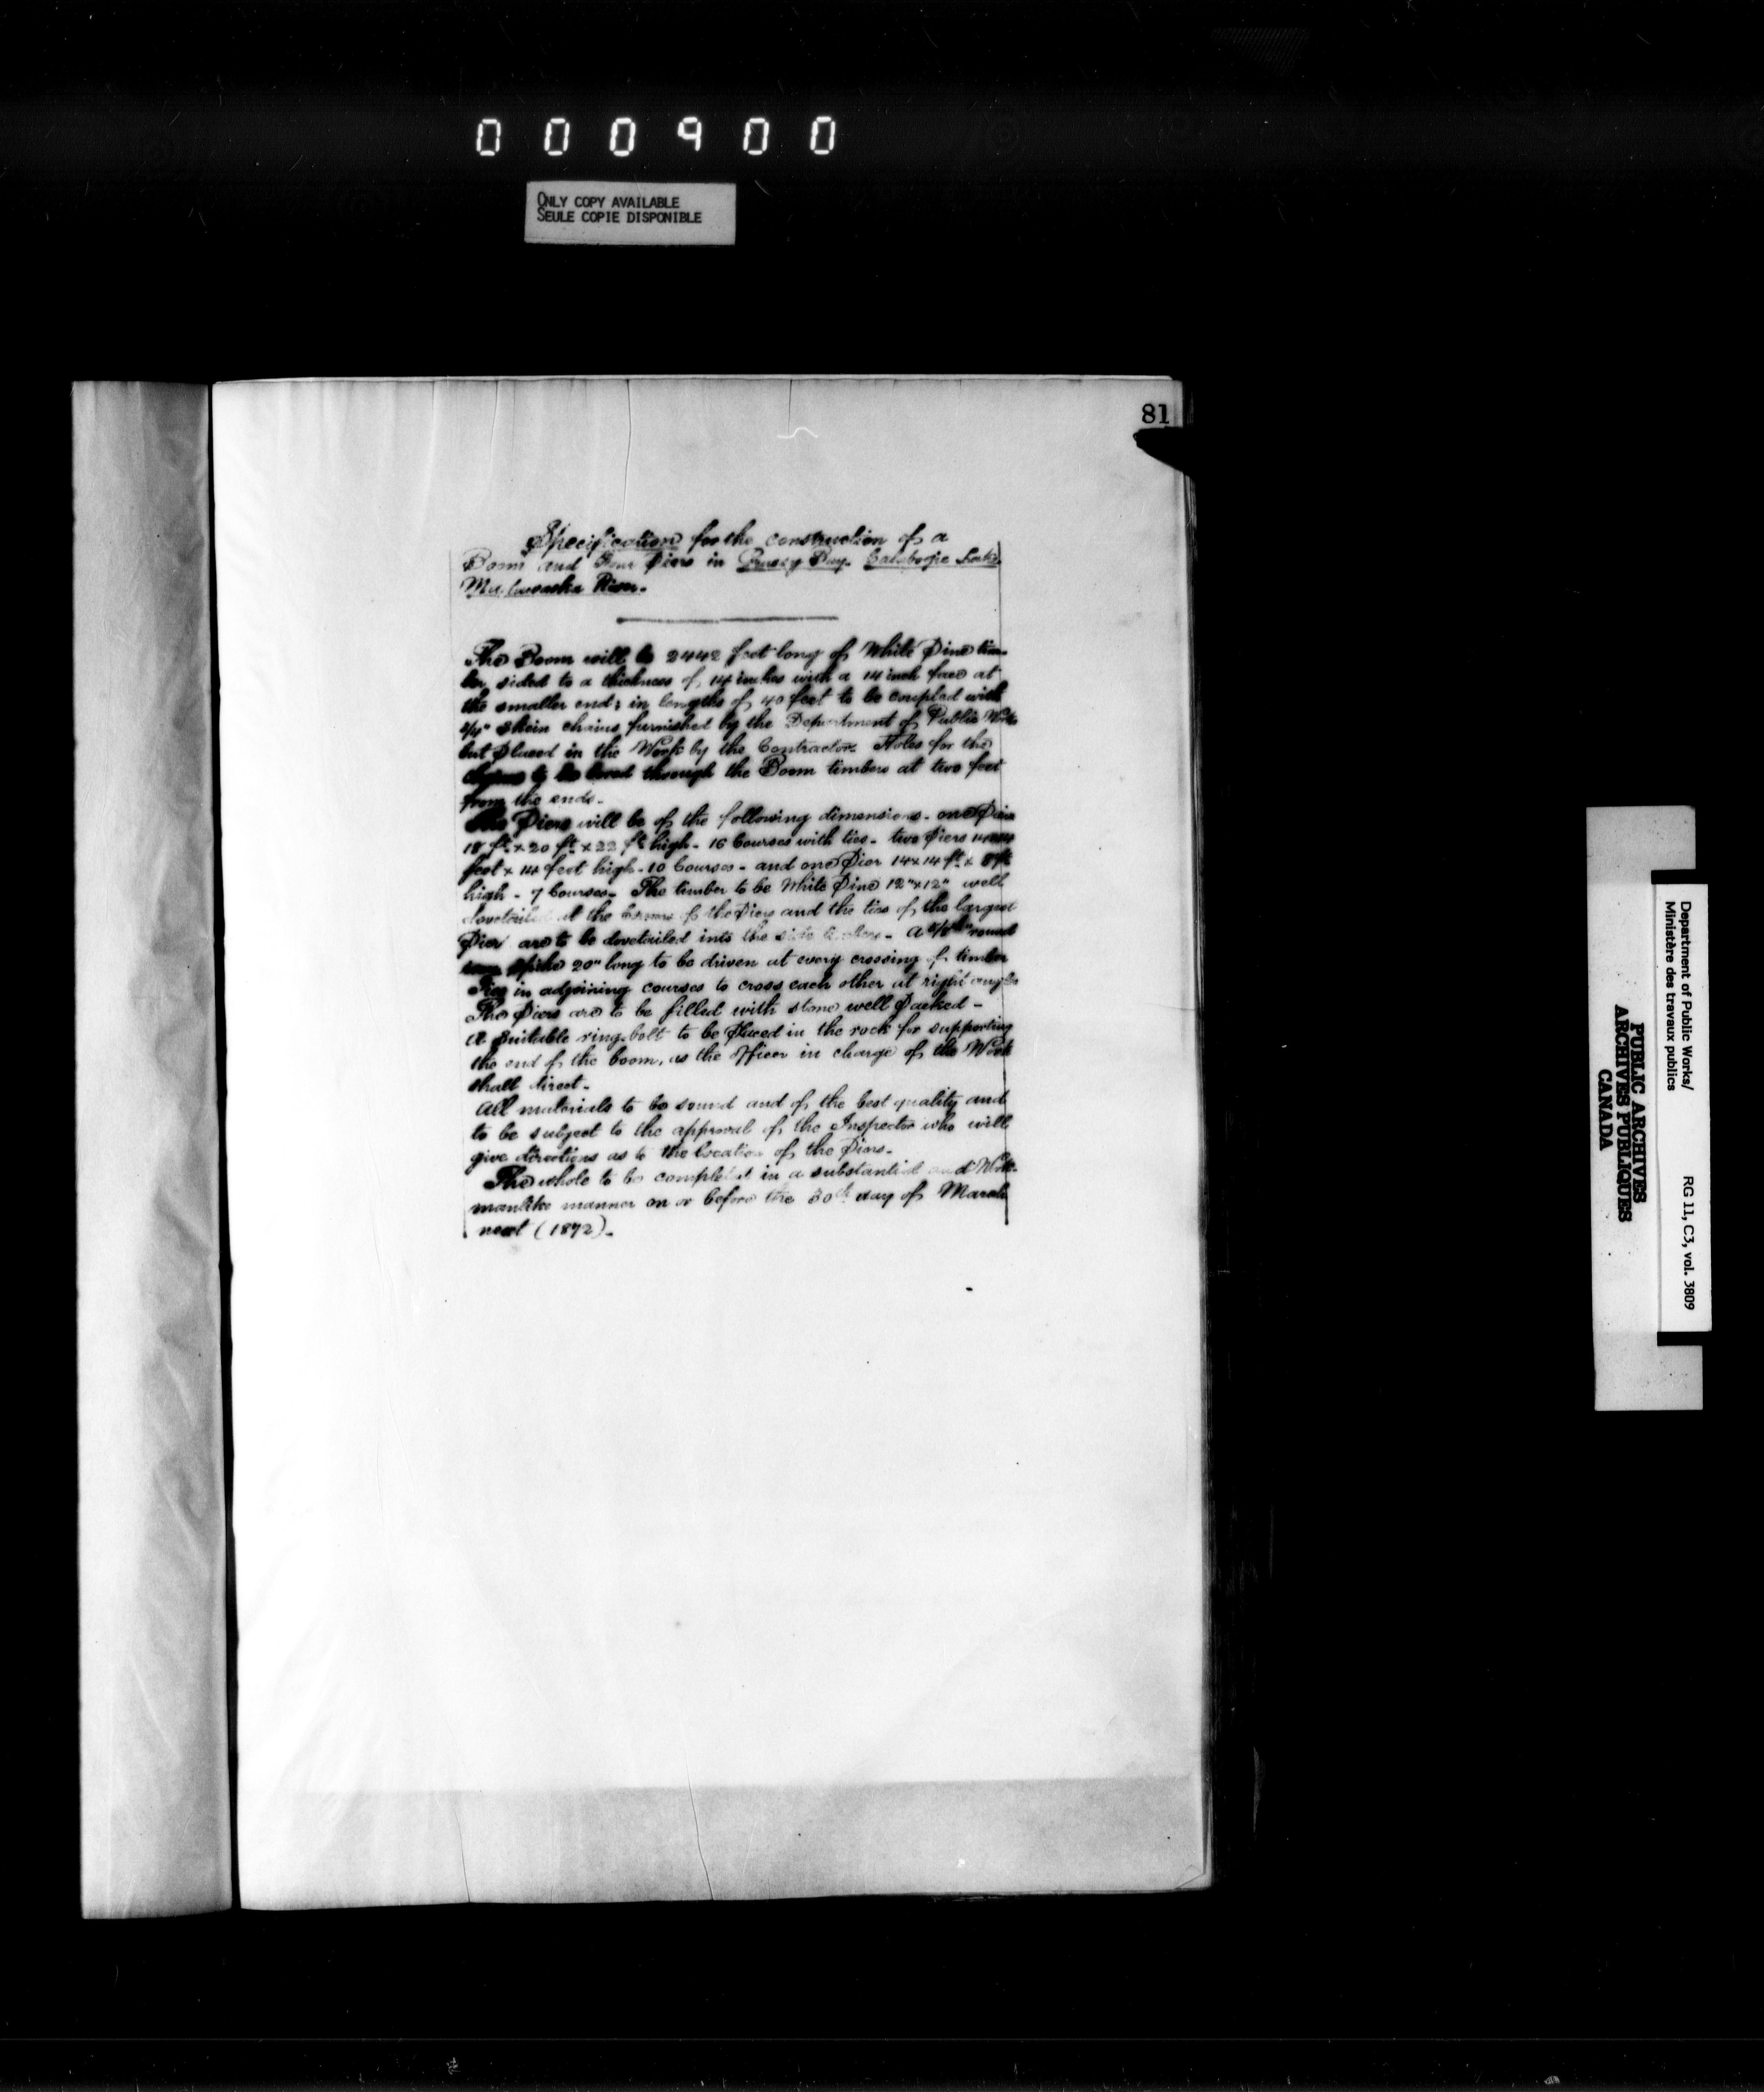 000900
ONLY COPY AVAILABLE
SEULE COPIE DISPONIBLE
81
Specification for the construction of a
Boom and Four Piers in Bay. Calabogie Lake
Madawaska River.
The Boom will be 2442 feet long of White Pine tim-
ber sided to a thickness of 14 inches with a 14 inch face at
the smaller end; in lengths of 40 feet to be coupled with
chains furnished by the Department of Public Works
but Placed in the Work by the Contractor. Holes for the
chains to be bored through the Boom timbers at two feet
from the ends.
The Piers will be of the following dimensions - one Pier
18 ft. x 20 ft. x 22 ft high - 16 Courses with ties - two Piers
feet x 14 feet high - 10 Courses - and one Pier 14x14 ft. x 8 ft
high - 7 Courses - The timber to be White Pine 12"x12" well
dovetailed at the Corners of the Piers and the ties of the largest
Pier are to be dovetailed into the side timbers - A round
spike 20" long to be driven at every crossing of timber
Ties in adjoining courses to cross each other at right angles
The Piers are to be filled with stone well Packed -
A Suitable ring-bolt to be Placed in the rock for supporting
the end of the boom, as the Officer in charge of the Work
shall direct -
All materials to be sound and of the best quality and
to be subject to the approval of the Inspector who will
give directions as to the location of the Piers -
The whole to be completed in a substantial and Work-
manlike manner on or before the 30th day of March
next (1872).
Department of Public Works/
Ministère des travaux publics
RG 11, C3, vol. 3809
PUBLIC ARCHIVES
ARCHIVES PUBLIQUES
CANADA